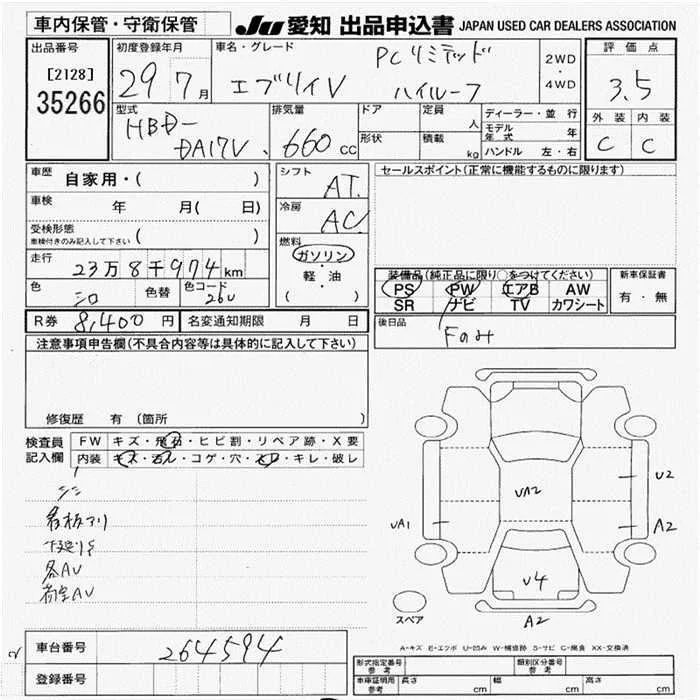 車内保管・守衛保管
JU 愛知 出品申込書 JAPAN USED CAR DEALERS ASSOCIATION
出品番号
[2128]
35266
初度登録年月
29年7月
車名・グレード
PCリミテッド
エブリイV ハイルーフ
2WD
・
4WD
評価点
3.5
外装 内装
C C
型式
HBD-
DA17V
排気量
660 CC
ドア
形状
定員 人
積載 kg
ディーラー・並行
モデル年式 年
ハンドル 左・右
車歴 自家用・( )
車検 年 月( 日)
受検形態
車検付きのみ記入して下さい ( )
走行 23万8千974km
色 シロ 色替 色コード 26U
R券 8,400円 名変通知期限 月 日
シフト AT.
冷房 AC
燃料
ガソリン
・
軽・油
( )
セールスポイント(正常に機能するものに限ります)
装備品(純正品に限り○をつけてください)
PS PW エアB AW
SR ナビ TV カワシート
新車保証書
有・無
後日品
Fのみ
注意事項申告欄(不具合内容等は具体的に記入して下さい)
修復歴 有 (箇所 )
検査員
記入欄
FW キズ・飛石・ヒビ割・リペア跡・X要
内装 キズ・汚レ・コゲ・穴・スレ・キレ・破レ
看板アリ
下廻りS
各AU
荷室AU
UA2
U2
UA1
A2
U4
A2
スペア
A-キズ E-エクボ U-凹み W-補修跡 S-サビ C-腐食 XX-交換済
車台番号 264594
登録番号
形式指定番号
参考
類別区分番号
参考
車庫証明用
参考
長さ cm 幅 cm 高さ cm